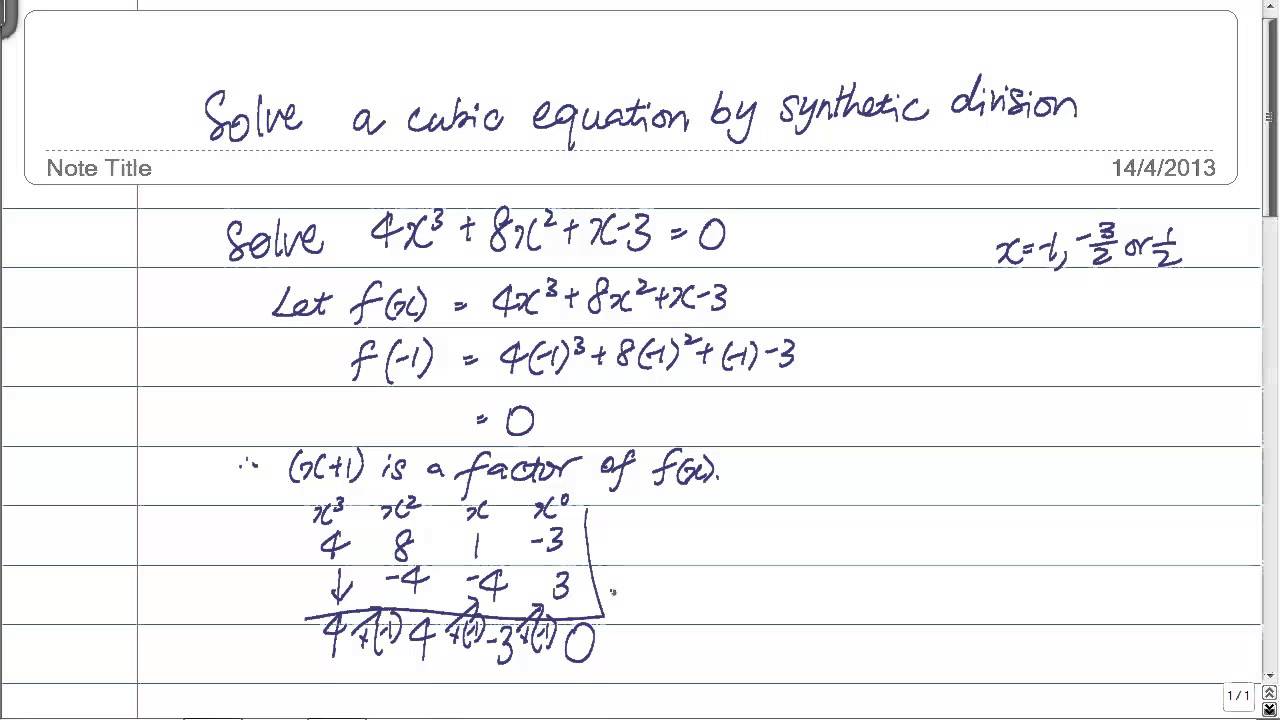 Solve a cubic equation by synthetic division
Note Title
14/4/2013
Solve 4x³ + 8x² + x - 3 = 0
x = -1, -3/2 or 1/2
Let f(x) = 4x³ + 8x² + x - 3
f(-1) = 4(-1)³ + 8(-1)² + (-1) - 3
= 0
∴ (x+1) is a factor of f(x).
x³ x² x x⁰
4 8 1 -3
↓ -4 -4 3
4 ×(-1) 4 ×(-1) -3 ×(-1) 0
1 / 1